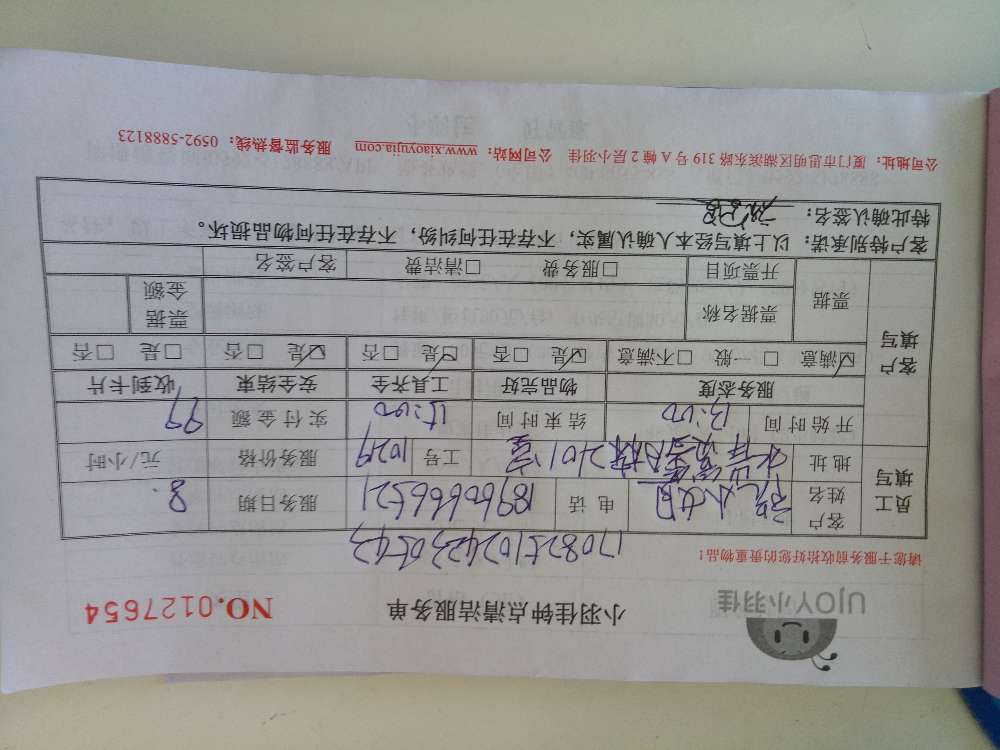 UJOY小羽佳
小羽佳钟点清洁服务单
NO.0127654
请您于服务前收拾好您的贵重物品！
员工填写
客户姓名 小姐 电话 18960666521 服务日期 8.
地址 2101室 工号 1029 服务价格 元/小时
客户填写
开始时间 13:00 结束时间 15:00 实付金额 99
服务态度 物品完好 工具齐全 安全结束 收到卡片
☑满意 □一般 □不满意 ☑是 □否 ☑是 □否 ☑是 □否 □是 □否
票据 票据名称 票据金额
开票项目 □服务费 □清洁费 客户签名
客户特别承诺：以上填写经本人确认属实，不存在任何纠纷，不存在任何物品损坏。
特此确认签名：
公司地址：厦门市思明区湖滨东路 319 号 A 幢 2 层小羽佳 公司网站：www.xiaoyujia.com 服务监督热线：0592-5888123